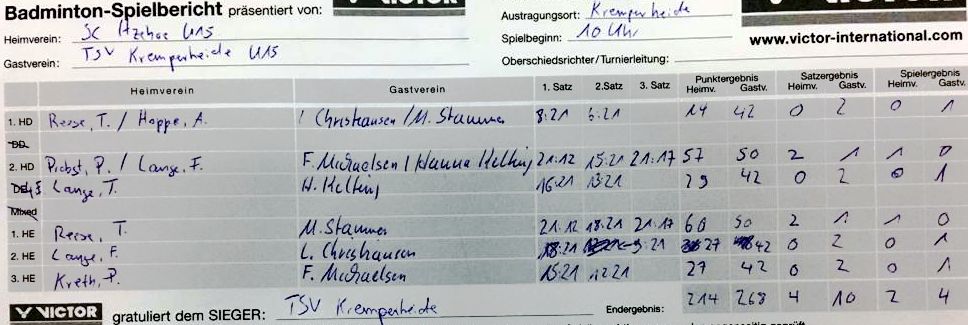 Badminton-Spielbericht präsentiert von: VICTOR
Heimverein: SC Itzehoe U15 Austragungsort: Kremperheide
Gastverein: TSV Kremperheide U15 Spielbeginn: 10 Uhr
www.victor-international.com
Oberschiedsrichter/Turnierleitung:
Heimverein Gastverein 1. Satz 2. Satz 3. Satz Punktergebnis Heimv. Gastv. Satzergebnis Heimv. Gastv. Spielergebnis Heimv. Gastv.
1. HD Reese, T. / Hoppe, A. / Christiansen / M. Stammer 8:21 6:21 14 42 0 2 0 1
DD
2. HD Probst, P. / Lange, F. F. Michaelsen / Hanna Helting 21:12 15:21 21:17 57 50 2 1 1 0
Lange, T. H. Helting 16:21 13:21 29 42 0 2 0 1
Mixed
1. HE Reese, T. M. Stammer 21:12 18:21 21:17 60 50 2 1 1 0
2. HE Lange, F. L. Christiansen 18:21 9:21 27 42 0 2 0 1
3. HE Kreth, P. F. Michaelsen 15:21 12:21 27 42 0 2 0 1
VICTOR gratuliert dem SIEGER: TSV Kremperheide Endergebnis: 214 268 4 10 2 4